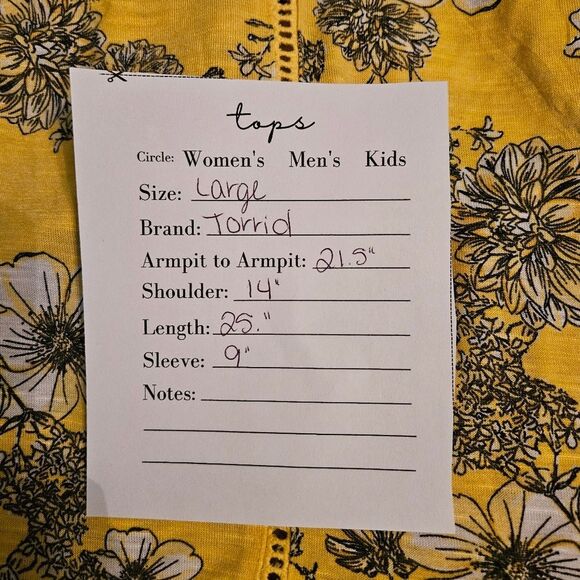 tops
Circle: Women's Men's Kids
Size: Large
Brand: Torrid
Armpit to Armpit: 21.5"
Shoulder: 14"
Length: 25."
Sleeve: 9"
Notes: